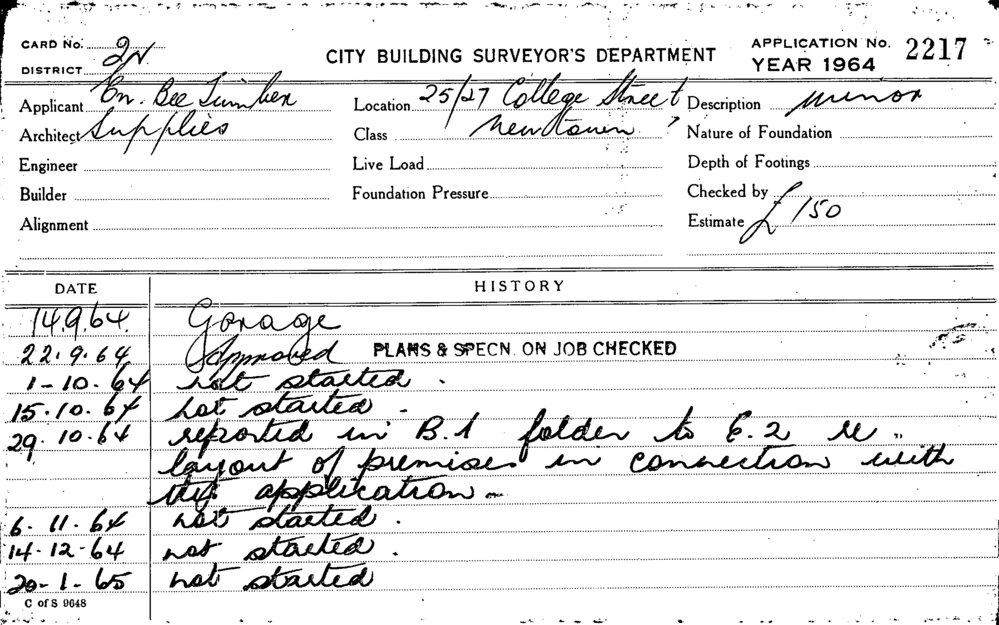 CARD No. 2N
CITY BUILDING SURVEYOR'S DEPARTMENT
APPLICATION No. 2217
DISTRICT
YEAR 1964
Applicant En. Bee Timber
Location 25/27 College Street
Description minor
Architect Supplies
Class Newtown
Nature of Foundation
Engineer
Live Load
Depth of Footings
Builder
Foundation Pressure
Checked by
Alignment
Estimate £150
DATE HISTORY
14.9.64. Garage
22.9.64 Approved PLANS & SPECN. ON JOB CHECKED
1-10-64 not started.
15.10.64 not started.
29.10.64 reported in B.1 folder to E.2 re
layout of premises in connection with
this application
6.11.64 not started.
14.12.64 not started.
20-1-65 not started
C of S 9648